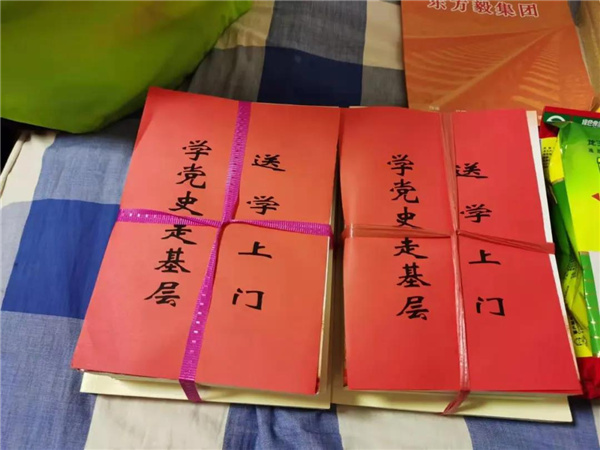 东方毅集团
学党史走基层
送学上门
学党史走基层
送学上门